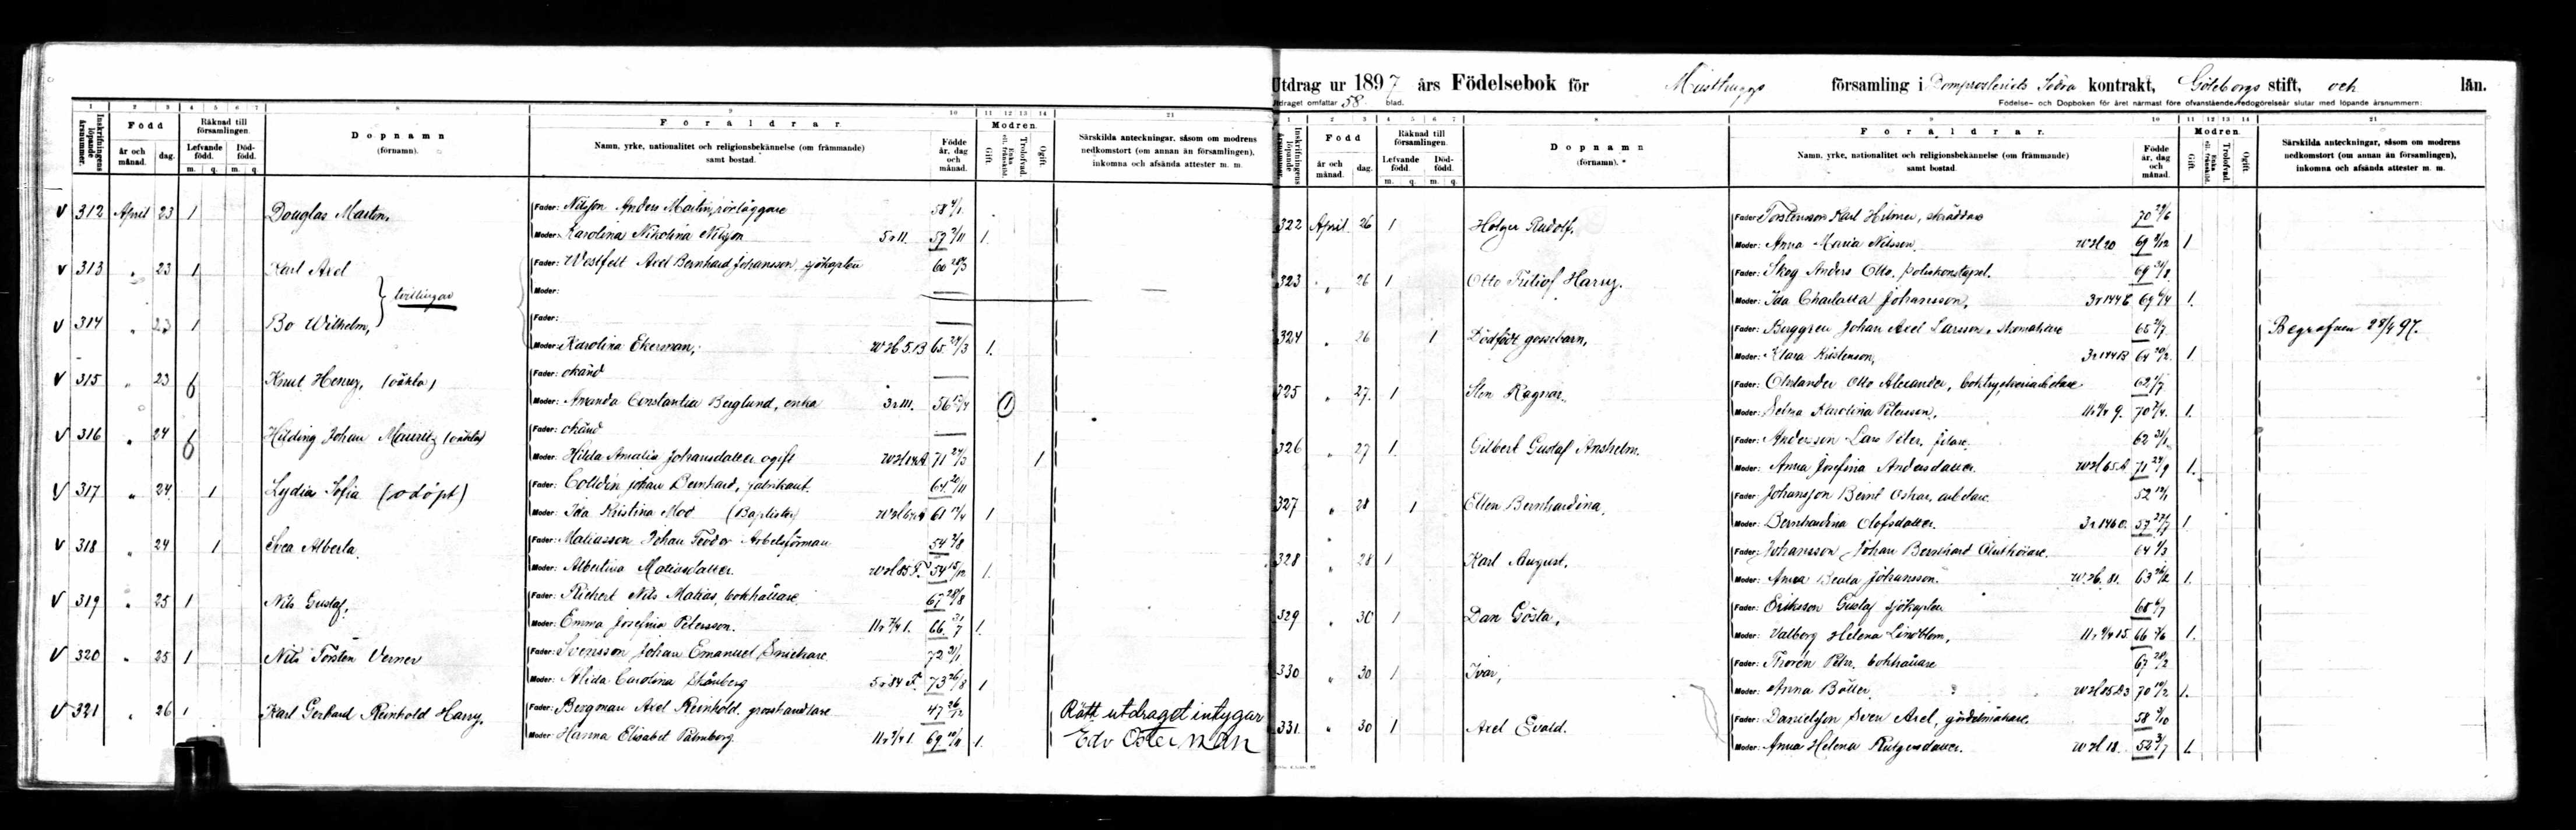 1 2 3 4 5 6 7 8 9 10 11 12 13 14 21
Inskrifningens löpande årsnummer.
Född
år och månad. dag.
Räknad till församlingen.
Lefvande född. Död-född.
m. q. m. q.
Dopnamn
(förnamn).
Föräldrar.
Namn, yrke, nationalitet och religionsbekännelse (om främmande)
samt bostad.
Födde år, dag och månad.
Modren.
Gift. Enka ell. frånskild. Trolofvad. Ogift
Särskilda anteckningar, såsom om modrens
nedkomstort (om annan än församlingen),
inkomna och afsända attester m. m.
V 312 April 23 1 Douglas Martin, Fader: Nilsson Anders Martin, rörläggare 58 4/1
Moder: Karolina Nikolina Nilsson 5 r 11. 57 7/11 1.
V 313 " 23 1 Karl Axel Fader: Westfelt Axel Bernhard Johansson, sjökapten 60 20/3
tvillingar Moder: —
V 314 " 23 1 Bo Wilhelm, Fader: —
Moder: Karolina Ekerman, W H 5.B 65 24/3 1.
V 315 " 23 Knut Henry, (oäkta) Fader: okänd —
Moder: Amanda Constantia Berglund, enka 3 r 111. 56 12/4 1
V 316 " 24 Hilding Johan Mauritz (oäkta) Fader: okänd —
Moder: Hilda Amalia Johansdatter ogift 71 24/3 1
V 317 " 24 1 Lydia Sofia (odöpt) Fader: Colldén Johan Bernhard, fabrikant. 64 20/11
Moder: Ida Kristina Mod (Baptister) 61 12/4 1
V 318 " 24 1 Svea Alberta. Fader: Matiasson Johan Teodor Arbetsförman 54 2/8
Moder: Albertina Matiasdatter. W H 85 F. 54 15/12 1.
V 319 " 25 1 Nils Gustaf, Fader: Richert Nils Matias, bokhållare. 67 28/8
Moder: Emma Josefina Petersson. 11 r 7/4 1. 66. 31/7 1.
V 320 " 25 1 Nils Torsten Verner Fader: Svensson Johan Emanuel Snickare. 72 31/1
Moder: Alida Carolina Skånberg 5 r 84 F. 73 26/8 1
V 321 " 26 1 Karl Gerhard Reinhold Harry. Fader: Bergman Axel Reinhold. grosshandlare 47 26/12 Rätt utdraget intygar
Moder: Hanna Elisabet Palmborg. 69 1. Edv Osterman
Utdrag ur 1897 års Födelsebok för Masthuggs församling i Domprosteriets Södra kontrakt, Göteborgs stift, och län.
Utdraget omfattar 58 blad. Födelse- och Dopboken för året närmast före ofvanstående redogörelseår slutar med löpande årsnummer:
1 2 3 4 5 6 7 8 9 10 11 12 13 14 21
Inskrifningens löpande årsnummer.
Född
år och månad. dag.
Räknad till församlingen.
Lefvande född. Död-född.
m. q. m. q.
Dopnamn
(förnamn).
Föräldrar.
Namn, yrke, nationalitet och religionsbekännelse (om främmande)
samt bostad.
Födde år, dag och månad.
Modren.
Gift. Enka ell. frånskild. Trolofvad. Ogift
Särskilda anteckningar, såsom om modrens
nedkomstort (om annan än församlingen),
inkomna och afsända attester m. m.
322 April 26 1 Holger Rudolf. Fader: Torstensson Karl Hilmer, skräddare 70 29/6
Moder: Anna Maria Nilsson. W H 20 69 9/12 1
323 " 26 1 Otto Fritiof Harry. Fader: Skog Anders Otto, Poliskonstapel. 69 31/8
Moder: Ida Charlotta Johansson, 3 r 144 E 69 6/4 1.
324 " 26 1 Dödfödt gossebarn, Fader: Berggren Johan Axel Larsson, skomakare 65 2/7 Begrafven 28/4 97.
Moder: Klara Kristenson, 3 r 144 B 64 20/2. 1
325 " 27. 1 Sten Ragnar, Fader: Ohlander Otto Alexander, boktryckeriarbetare 62 1/7
Moder: Selma Karolina Petersson, 70 7/4. 1.
326 " 27 1 Gilbert Gustaf Anshelm. Fader: Andersson Lars Peter, filare. 62 31/1
Moder: Anna Josefina Andersdatter. W H 65.A 71 24/9 1.
327 " 28 1 Ellen Bernhardina, Fader: Johansson Bernt Oskar, arbetare 52 12/1
Moder: Bernhardina Olofsdatter. 3 r 146 C. 57 27/7 1.
328 " 28 1 Karl August, Fader: Johansson Johan Bernhard 64 4/3
Moder: Anna Beata Johansson. W H. 81. 63 26/2 1.
329 " 30 1 Dan Gösta, Fader: Eriksson Gustaf sjökapten 65 4/7
Moder: Valborg Helena Lindblom, 11 r 9/4 15 66 3/6 1.
330 " 30 1 Ivar, Fader: Thorén Petr. bokhållare 67 28/2
Moder: Anna Böller. W H 85 B3 70 10/2 1.
331. " 30 1 Axel Evald. Fader: Danielsson Sven Axel, gördelmakare. 58 3/10
Moder: Anna Helena Rutgersdatter. W H 18. 52 3/7 1.